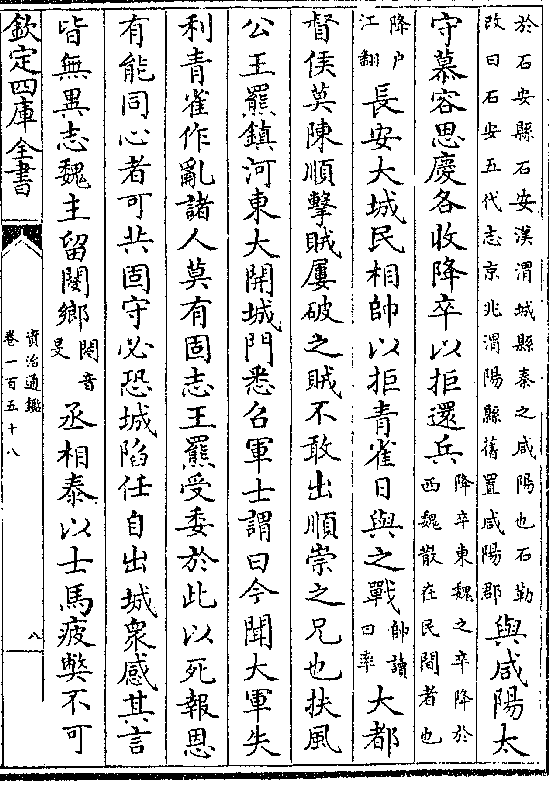 於石安縣石安漢渭城縣秦之咸陽也石勒
改曰石安五代志京兆渭陽縣舊置咸陽郡
與咸陽太
守慕容思慶各收降卒以拒還兵
降卒東魏之卒降於
西魏散在民間者也
降户
江翻
長安大城民相帥以拒青雀日與之戰
帥讀
曰率
大都
督侯莫陳順擊賊屢破之賊不敢出順崇之兄也扶風
公王羆鎮河東大開城門悉召軍士謂曰今聞大軍失
利青雀作亂諸人莫有固志王羆受委於此以死報恩
有能同心者可共固守必恐城陷任自出城衆感其言
皆無異志魏主留閿鄉
閿音
旻
丞相泰以士馬疲弊不可
欽定四庫全書
資治通鑑
卷一百五十八
八